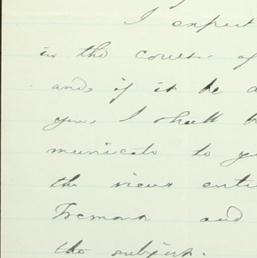 I expect
in the course of
and if it be
you I shall
municate to you
the views
Fremont and
the subject.